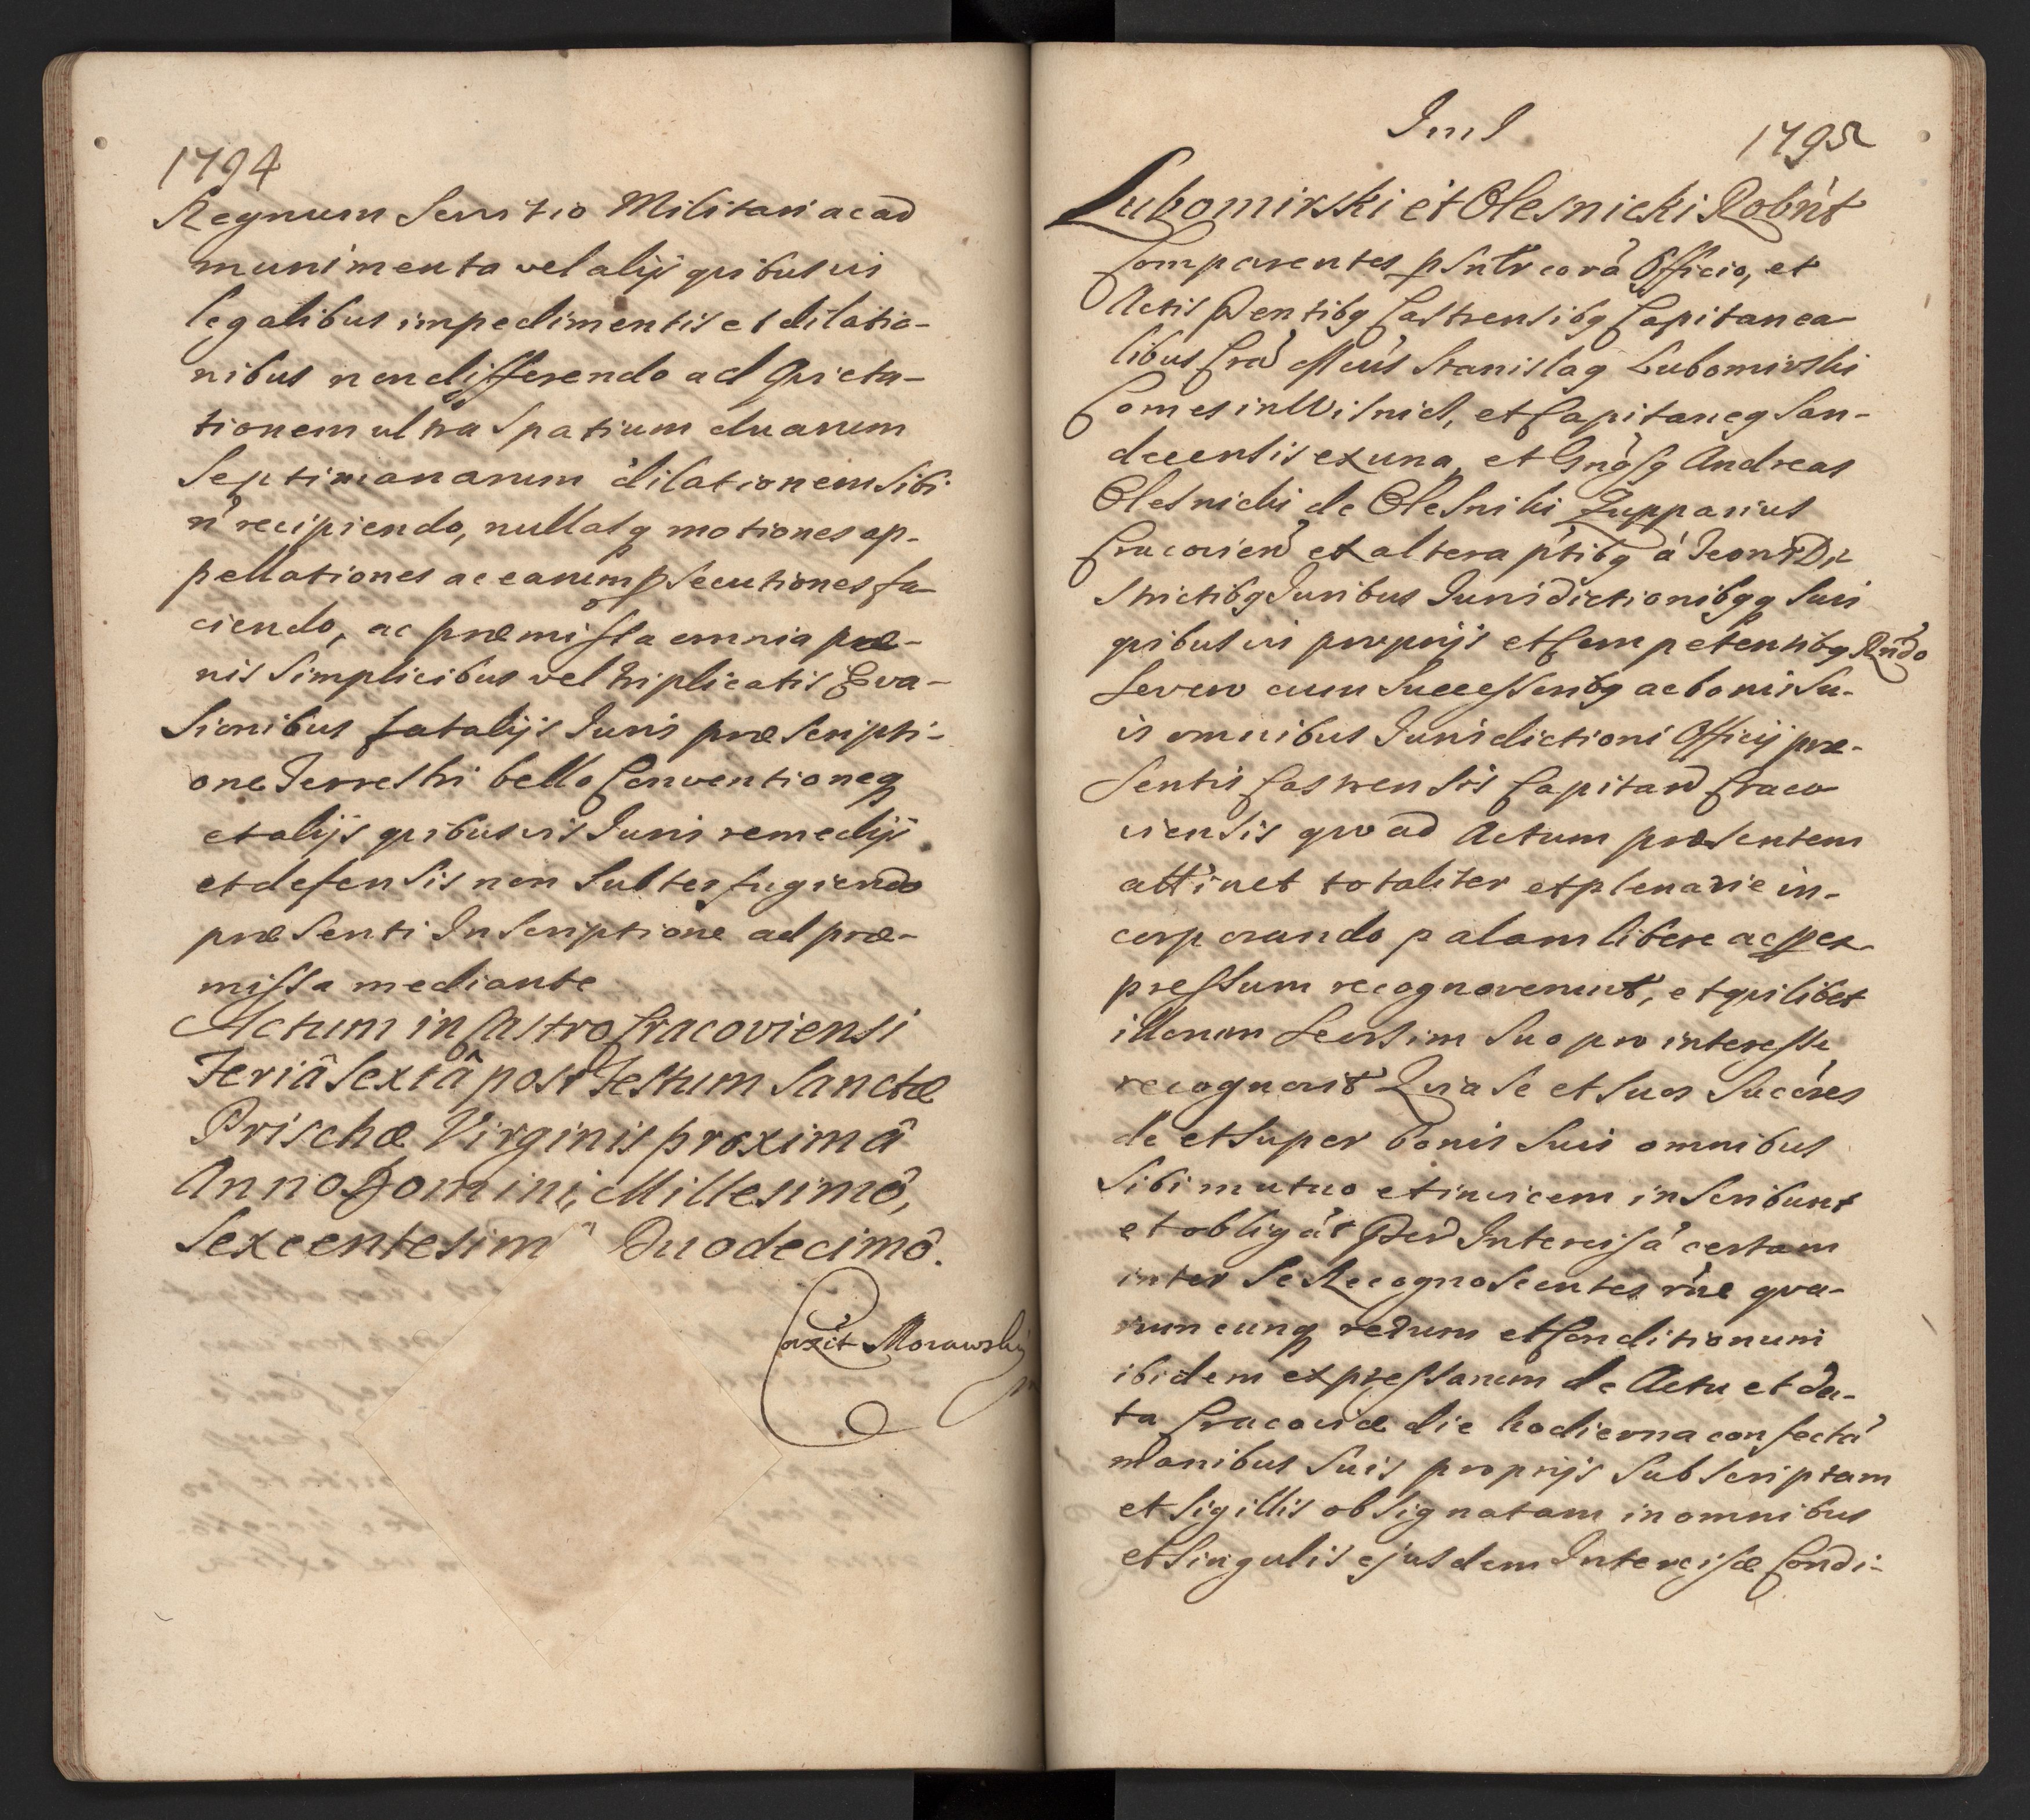 1794
Regnum Servitio Militari ac ad
munimenta vel alijs quibusvis
legalibus impedimentis et dilatio-
nibus non differendo ad Quieta-
tionem ultra Spatium duarum
Septimanarum dilationem sibi
n̄ recipiendo, nullasq motiones ap-
pellationes ac earum pSecutiones fa-
ciendo, ac præmissa omnia pœ-
nis Simplicibus vel triplicatis Eva-
sionibus fatalijs Juris præscripti-
one Terrestri bello Conventioneq
et alijs quibusvis Juris remedijs
et defensis non Subterfugiendo
præsenti Inscriptione ad præ-
missa mediante
Actum in Castro Cracoviensi
Feriâ Sextâ post Festum Sanctæ
Prischæ Virginis proximâ
Anno Domini, Millesimô,
Sexcentesimô Duodecimô.
Coxit Morawsky
1795
Lubomirski et Olesnicki Robnt
Comparentes psnlr corā Officio, et
Actis pntibq Castrensibq Capitanea-
libus Crā Mcus Stanislaq Lubomirski
Comes in Wisnicz, et Capitaneq San-
decensis ex una, et Gnosq Andreas
Olesnicki de Olesniki Zupparius
Cracovien ex altera ptibq á
Strictibq Juribus Jurisdictionibqq Suis
quibusvis proprijs et Competentibq Rndo
Severo cum Successoribq ac bonis Su-
is omnibus Jurisdictioni Officij præ-
sentis Castrensis Capitan Craco
viensis quoad Actum præsentem
attinet totaliter et plenarie in-
corporando palam libere ac p ex-
pressum recognoverunt, et quilibet
illorum Seorsim Suo pro interesse
recognovit Quia Se et Suos Succres
de et Super bonis Suis omnibus
Sibi mutuo et invicem inscribunt
et obligāt Intercisā certam
inter Se Recognoscentes rne qua-
rumcunq rerum et Conditionum
ibidem expressarum de Actu et Da-
ta Cracoviæ die hodierna confectā
manibus Suis proprijs Subscriptam
et Sigillis obsignatam in omnibus
et Singulis ejusdem Intercisæ Condi-